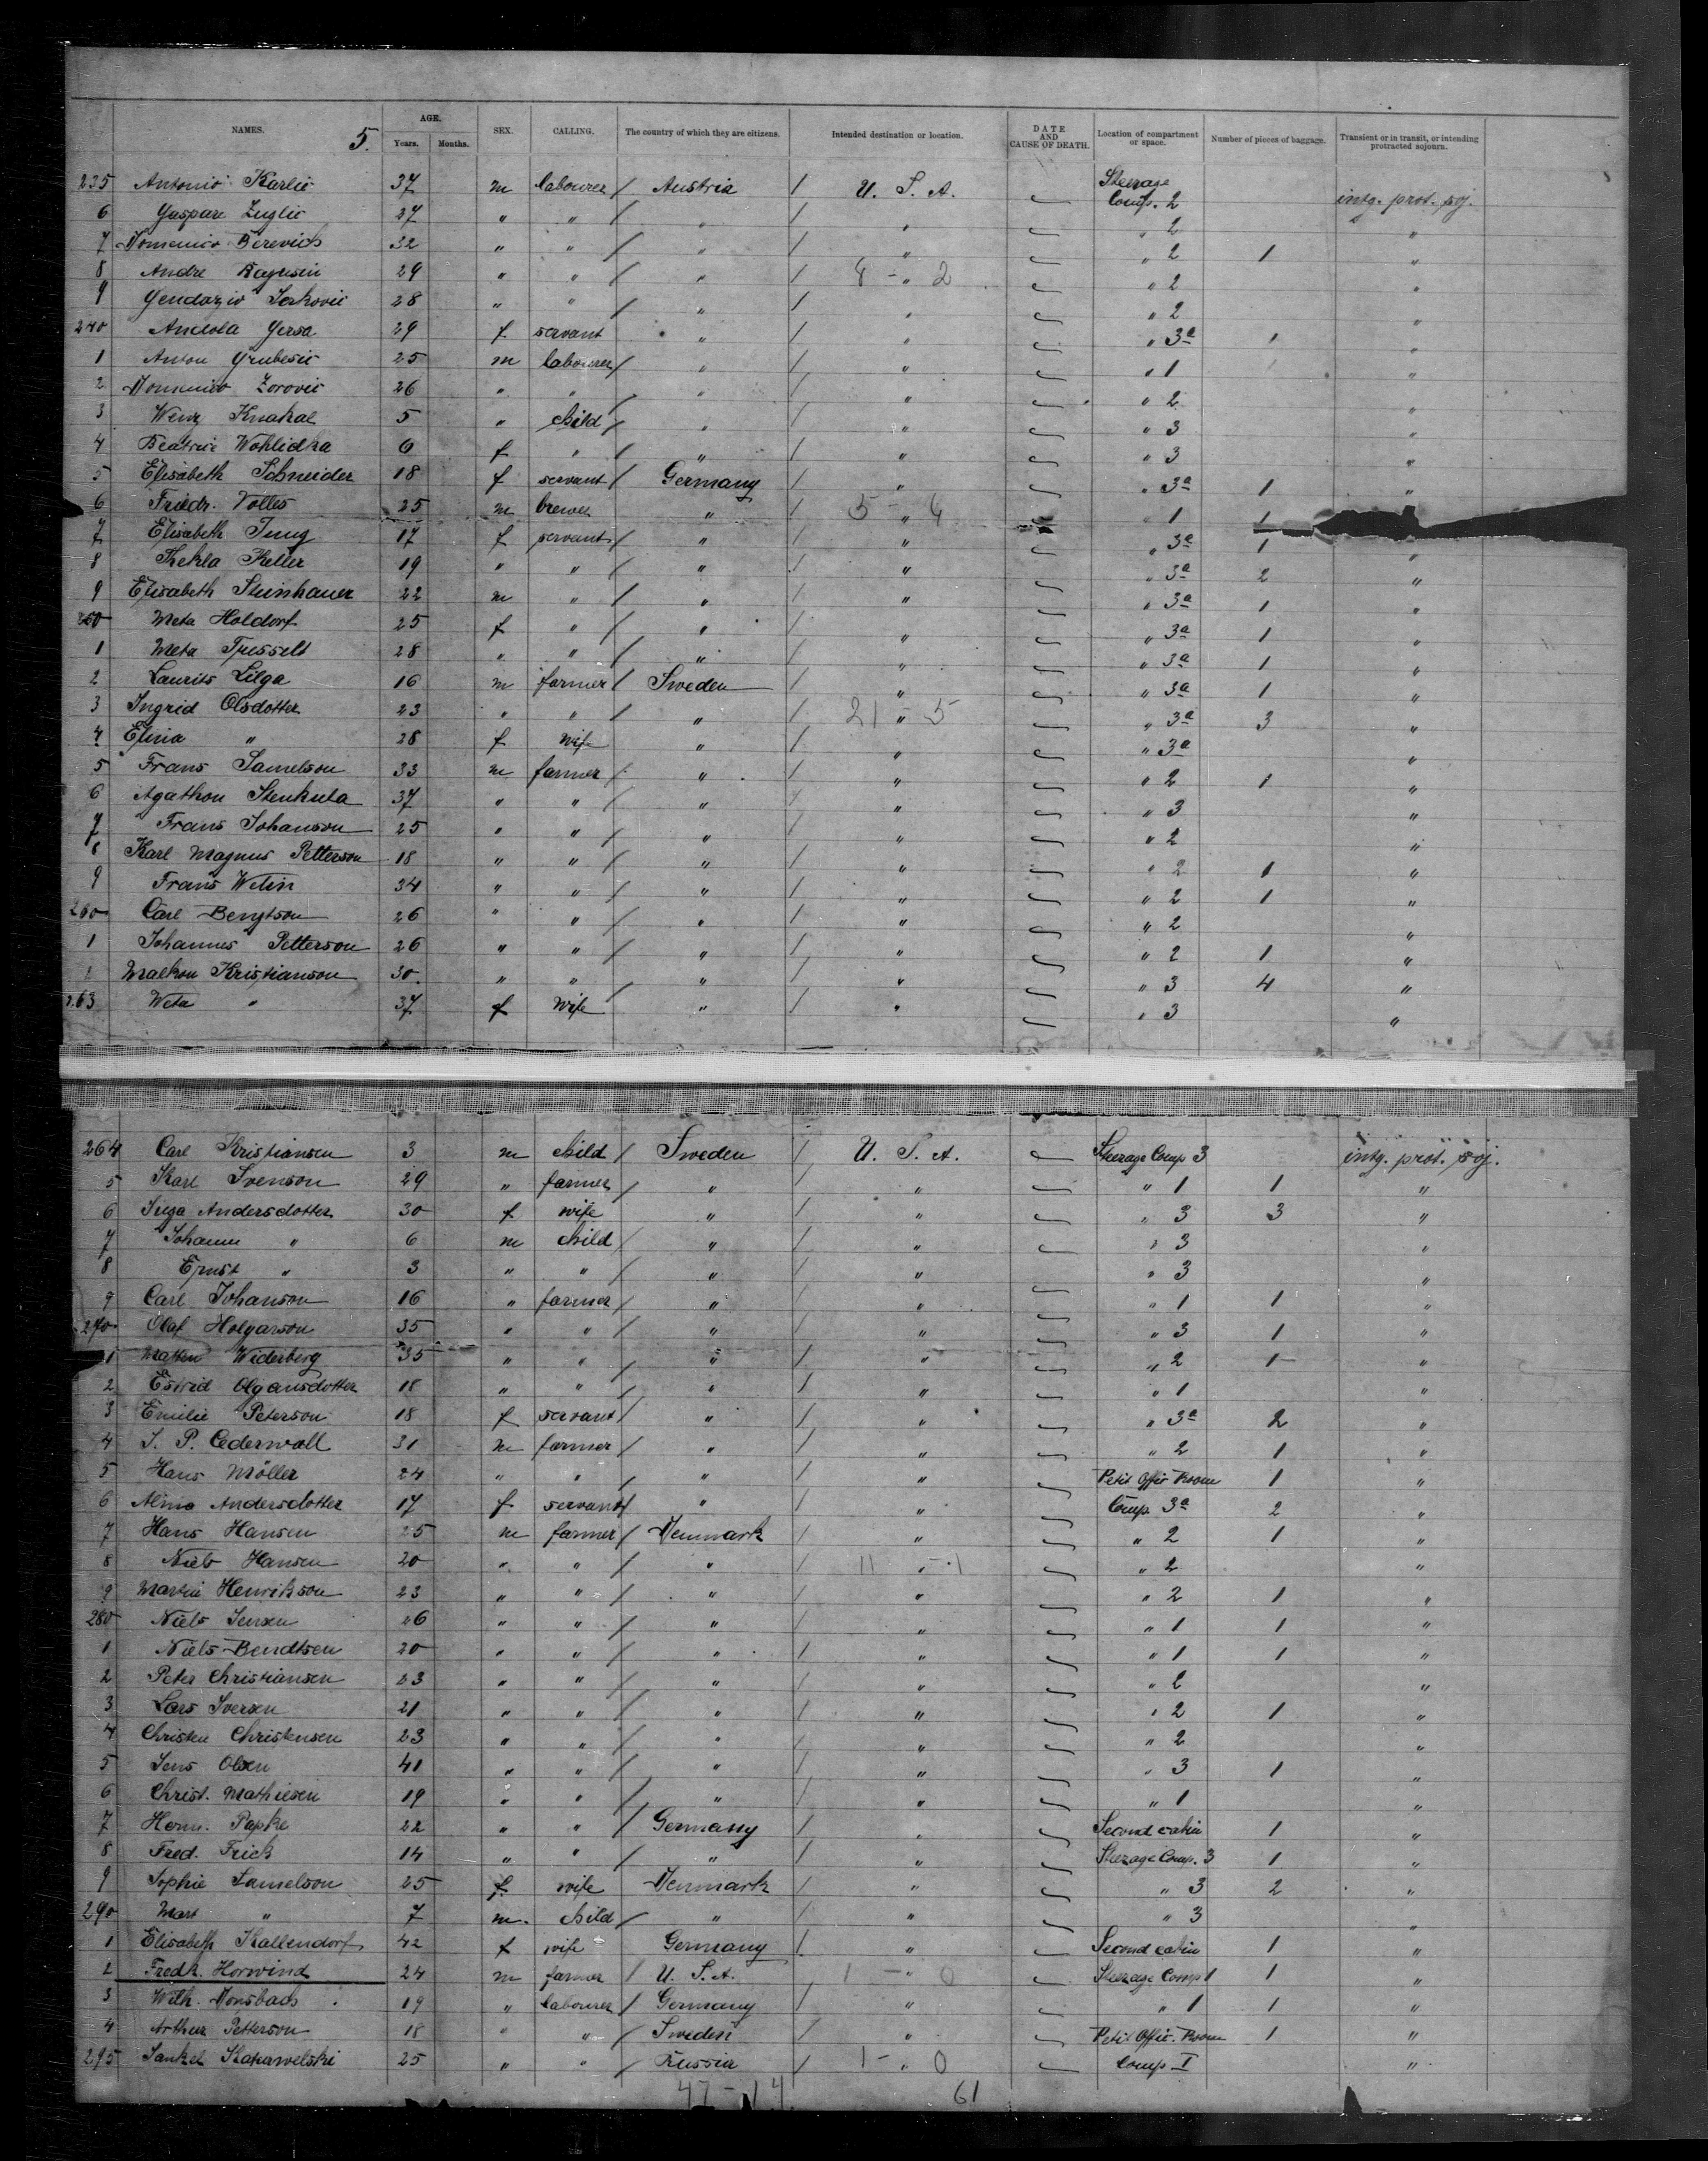 NAMES. 5. AGE. Years. Months. SEX. CALLING. The country of which they are citizens. Intended destination or location. DATE AND CAUSE OF DEATH. Location of compartment or space. Number of pieces of baggage. Transient or in transit, or intending protracted sojourn.
235 Antonio Karlic 37 m labourer / Austria / U. S. A. Steerage Comp. 2 intg. prot. soj.
6 Gaspare Zuglic 27 " " / " / " " 2 "
7 Domenico Berevich 32 " " / " / " " 2 1 "
8 Andre Ragusin 29 " " / " / 8 - " 2 " 2 "
9 28 " " / " / " " 2 "
240 Andola Gersa 29 f servant " / " " 3a 1 "
1 Anton Grubesic 25 m labourer / " / " " 1 "
2 Domenico Zorovic 26 " " / " / " " 2 "
3 Wenz Knakal 5 " child / " / " " 3 "
4 Beatrice Wohlidka f " / " / " " 3 "
5 Elisabeth Schneider 18 f servant / Germany / " " 3a 1 "
6 Friedr. Volles 25 m brewer " / 5 - " 4 " 1 1
7 Elisabeth Jung 17 f servant / " / " " 3a 1 "
8 Thekla Keller 19 " " / " / " " 3a 2 "
9 Elisabeth Steinhauer 22 m " / " / " " 3a 1 "
250 Meta Holdorf 25 f " / " / " " 3a 1 "
1 Meta Tresselt 28 " " / " / " " 3a 1 "
2 Laurits Lilga 16 m farmer / Sweden / " " 3a 1 "
3 Ingrid Olsdotter 23 " " / " / 21 " 5 " 3a 3 "
4 Elina " 28 f wife " / " " 3a "
5 Frans Samelson 33 m farmer / " / " " 2 1 "
6 Agathon Stenkula 37 " " / " / " " 3 "
7 Frans Johanson 25 " " / " / " " 2 "
8 Karl Magnus Petterson 18 " " / " / " " 2 1 "
9 Frans Welin 34 " " / " / " " 2 1 "
260 Carl Bengtson 26 " " / " / " " 2 "
1 Johannes Petterson 26 " " / " / " " 2 1 "
2 Malkon Kristianson 30 " " / " / " " 3 4 "
263 Weta " 37 f wife " / " " 3 "
264 Carl Kristiansen 3 m child / Sweden / U. S. A. Steerage Comp 3 intg. prot. soj.
5 Karl Svenson 29 " farmer / " / " " 1 1 "
6 Inga Andersdotter 30 f wife " / " " 3 3 "
7 Johann " 6 m child / " / " " 3 "
8 Ernst " 3 " " / " / " " 3 "
9 Carl Johanson 16 " farmer / " / " " 1 1 "
270 Olaf Holgarson 35 " " / " / " " 3 1 "
1 Widerberg 35 " " / " / " " 2 1 "
2 Estrid Olgansdotter 18 " " / " / " " 1 "
3 Emilie Peterson 18 f servant / " / " " 3a 2 "
4 J. P. Cederwall 31 m farmer / " / " " 2 1 "
5 Hans Möller 24 " " / " / " Petit Offir Room 1 "
6 Alma Andersdotter 17 f servant / " / " Comp. 3a 2 "
7 Hans Hansen 25 m farmer / Denmark / " " 2 1 "
8 Niels Hansen 20 " " / " / 11 " - 1 " 2 "
9 Martin Henrikson 23 " " / " / " " 2 1 "
280 Niels Jensen 26 " " / " / " " 1 1 "
1 Niels Bendtsen 20 " " / " / " " 1 1 "
2 Peter Christiansen 23 " " / " / " " 2 "
3 Lars Iversen 21 " " / " / " " 2 1 "
4 Christen Christensen 23 " " / " / " " 2 "
5 Jens Olsen 41 " " / " / " " 3 1 "
6 Christ. Mathiesen 19 " " / " / " " 1 "
7 Herm. Papke 22 " " / Germany / " Second cabin 1 "
8 Fred. Frick 14 " " / " / " Steerage Comp. 3 1 "
9 Sophie Samelson 25 f wife Denmark / " " 3 2 "
290 " 7 m. child / " / " " 3 "
1 Elisabeth Kallendorf 42 f wife Germany / " Second cabin 1 "
2 Fredk. Horwind 24 m farmer / U. S. A. 1 - " 0 Steerage Comp 1 1 "
3 Wilh. Donsbach 19 " labourer / Germany / " " 1 1 "
4 Arthur Petterson 18 " " Sweden / " Petit Offic. Room 1 "
295 Jankel 25 " " / Russia / 1 - " 0 Comp I "
47 - 14 61